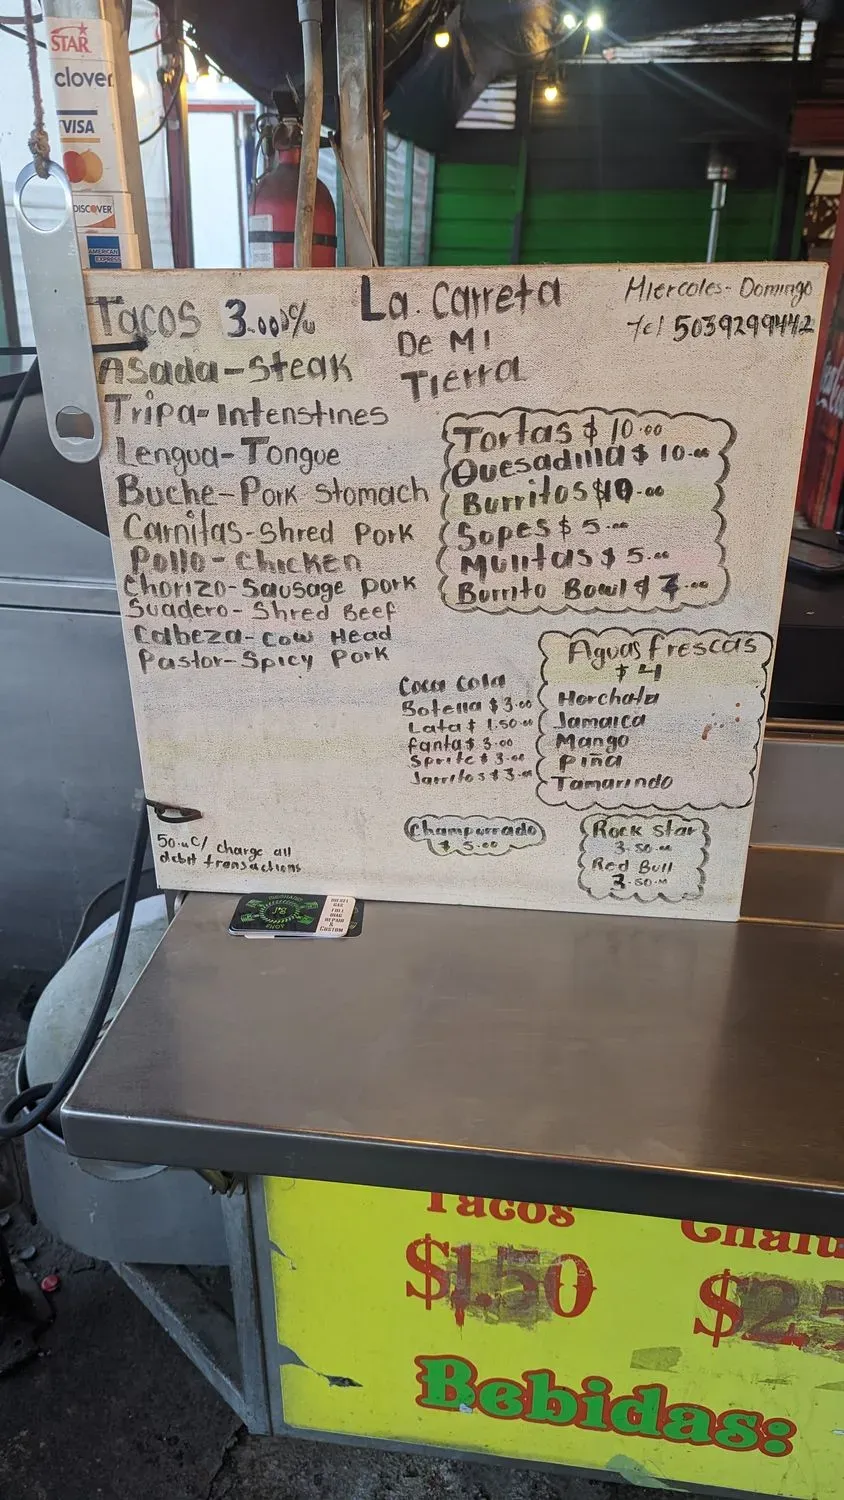 STAR
clover
VISA
DISCOVER
AMERICAN
EXPRESS
Tacos 3.00
La. Carreta
De MI
Tierra
Miercoles - Domingo
Tel 5039299442
Asada-Steak
Tripa-Intenstines
Lengua-Tongue
Buche-Pork Stomach
Carnitas-Shred Pork
Pollo-Chicken
Chorizo-Sausage Pork
Suadero-Shred Beef
Cabeza-Cow Head
Pastor-Spicy Pork
Tortas $10.00
Quesadilla $10.00
Burritos $10.00
Sopes $5.00
Mulitas $5.00
Burrito Bowl $7.00
Aguas frescas
$4
Horchata
Jamaica
Mango
Piña
Tamarindo
Coca Cola
Botella $3.00
Lata $1.50
Fanta $3.00
Sprite $3.00
Jarritos $3.00
Champurrado
$5.00
Rock Star
3.50
Red Bull
3.50
50.¢/ charge all
debit transactions
J's
SHOP
DIESEL
GAS
FULL
DIAG
REPAIR
&
CUSTOM
Tacos
$1.50
Chalu
$25
Bebidas: